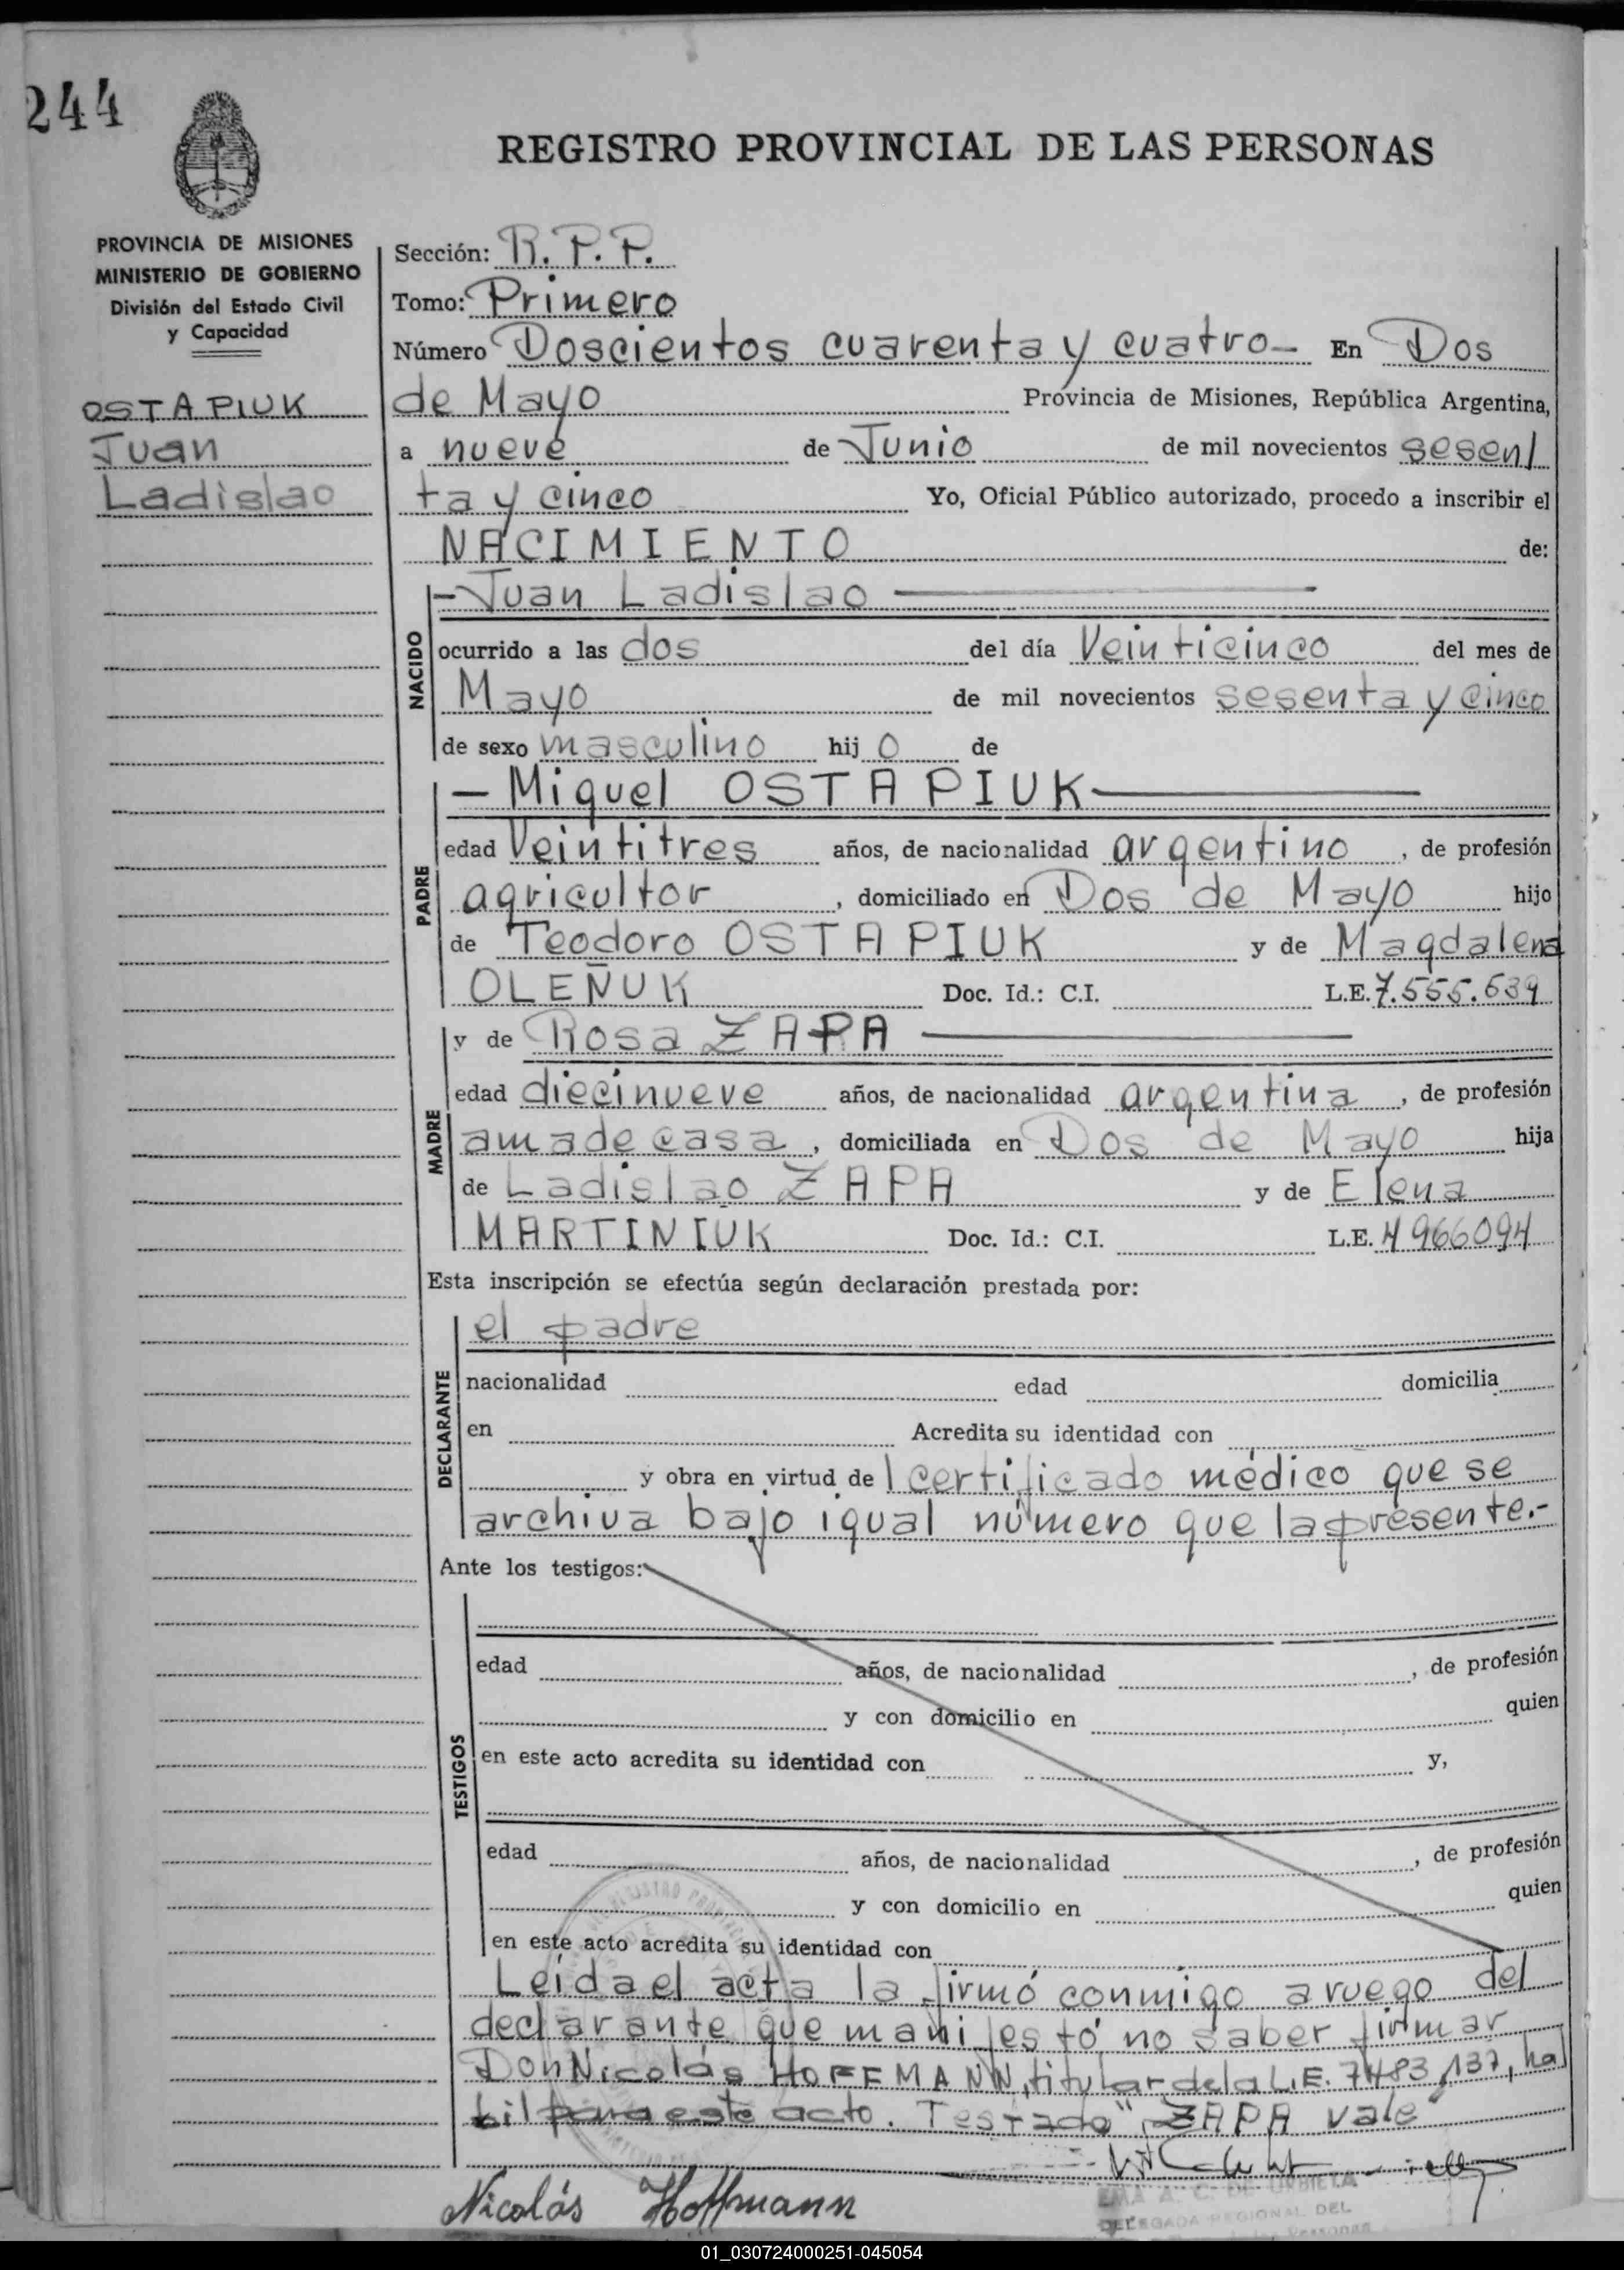 244
REGISTRO PROVINCIAL DE LAS PERSONAS
PROVINCIA DE MISIONES
MINISTERIO DE GOBIERNO
División del Estado Civil
y Capacidad
OSTAPIUK
Juan
Ladislao
Sección: R.P.P.
Tomo: Primero
Número Doscientos cuarenta y cuatro- En Dos
de Mayo Provincia de Misiones, República Argentina,
a nueve de Junio de mil novecientos sesen/
ta y cinco Yo, Oficial Público autorizado, procedo a inscribir el
NACIMIENTO de:
NACIDO
-Juan Ladislao
ocurrido a las dos del día Veinticinco del mes de
Mayo de mil novecientos sesenta y cinco
de sexo masculino hijo de
PADRE
- Miguel OSTAPIUK
edad Veintitres años, de nacionalidad argentino, de profesión
agricultor, domiciliado en Dos de Mayo hijo
de Teodoro OSTAPIUK y de Magdalena
OLEÑUK Doc. Id.: C.I. L.E. 7.555.639
MADRE
y de Rosa ZAPA
edad diecinueve años, de nacionalidad argentina, de profesión
ama de casa, domiciliada en Dos de Mayo hija
de Ladislao ZAPA y de Elena
MARTINIUK Doc. Id.: C.I. L.E. 4966094
Esta inscripción se efectúa según declaración prestada por:
DECLARANTE
el padre
nacionalidad edad domicilia
en Acredita su identidad con
y obra en virtud de / certificado médico que se
archiva bajo igual número que la presente.-
Ante los testigos:
TESTIGOS
edad años, de nacionalidad , de profesión
y con domicilio en quien
en este acto acredita su identidad con y,
edad años, de nacionalidad , de profesión
y con domicilio en quien
en este acto acredita su identidad con
Leída el acta la firmó conmigo a ruego del
declarante que manifestó no saber firmar
Don Nicolás HOFFMANN, titular de la L.E. 7483,137, ha/
bil para este acto. Testado "ZAPA vale"
Nicolás Hoffmann
EMA A. C. DE URBIETA
DELEGADA REGIONAL DEL
01_030724000251-045054